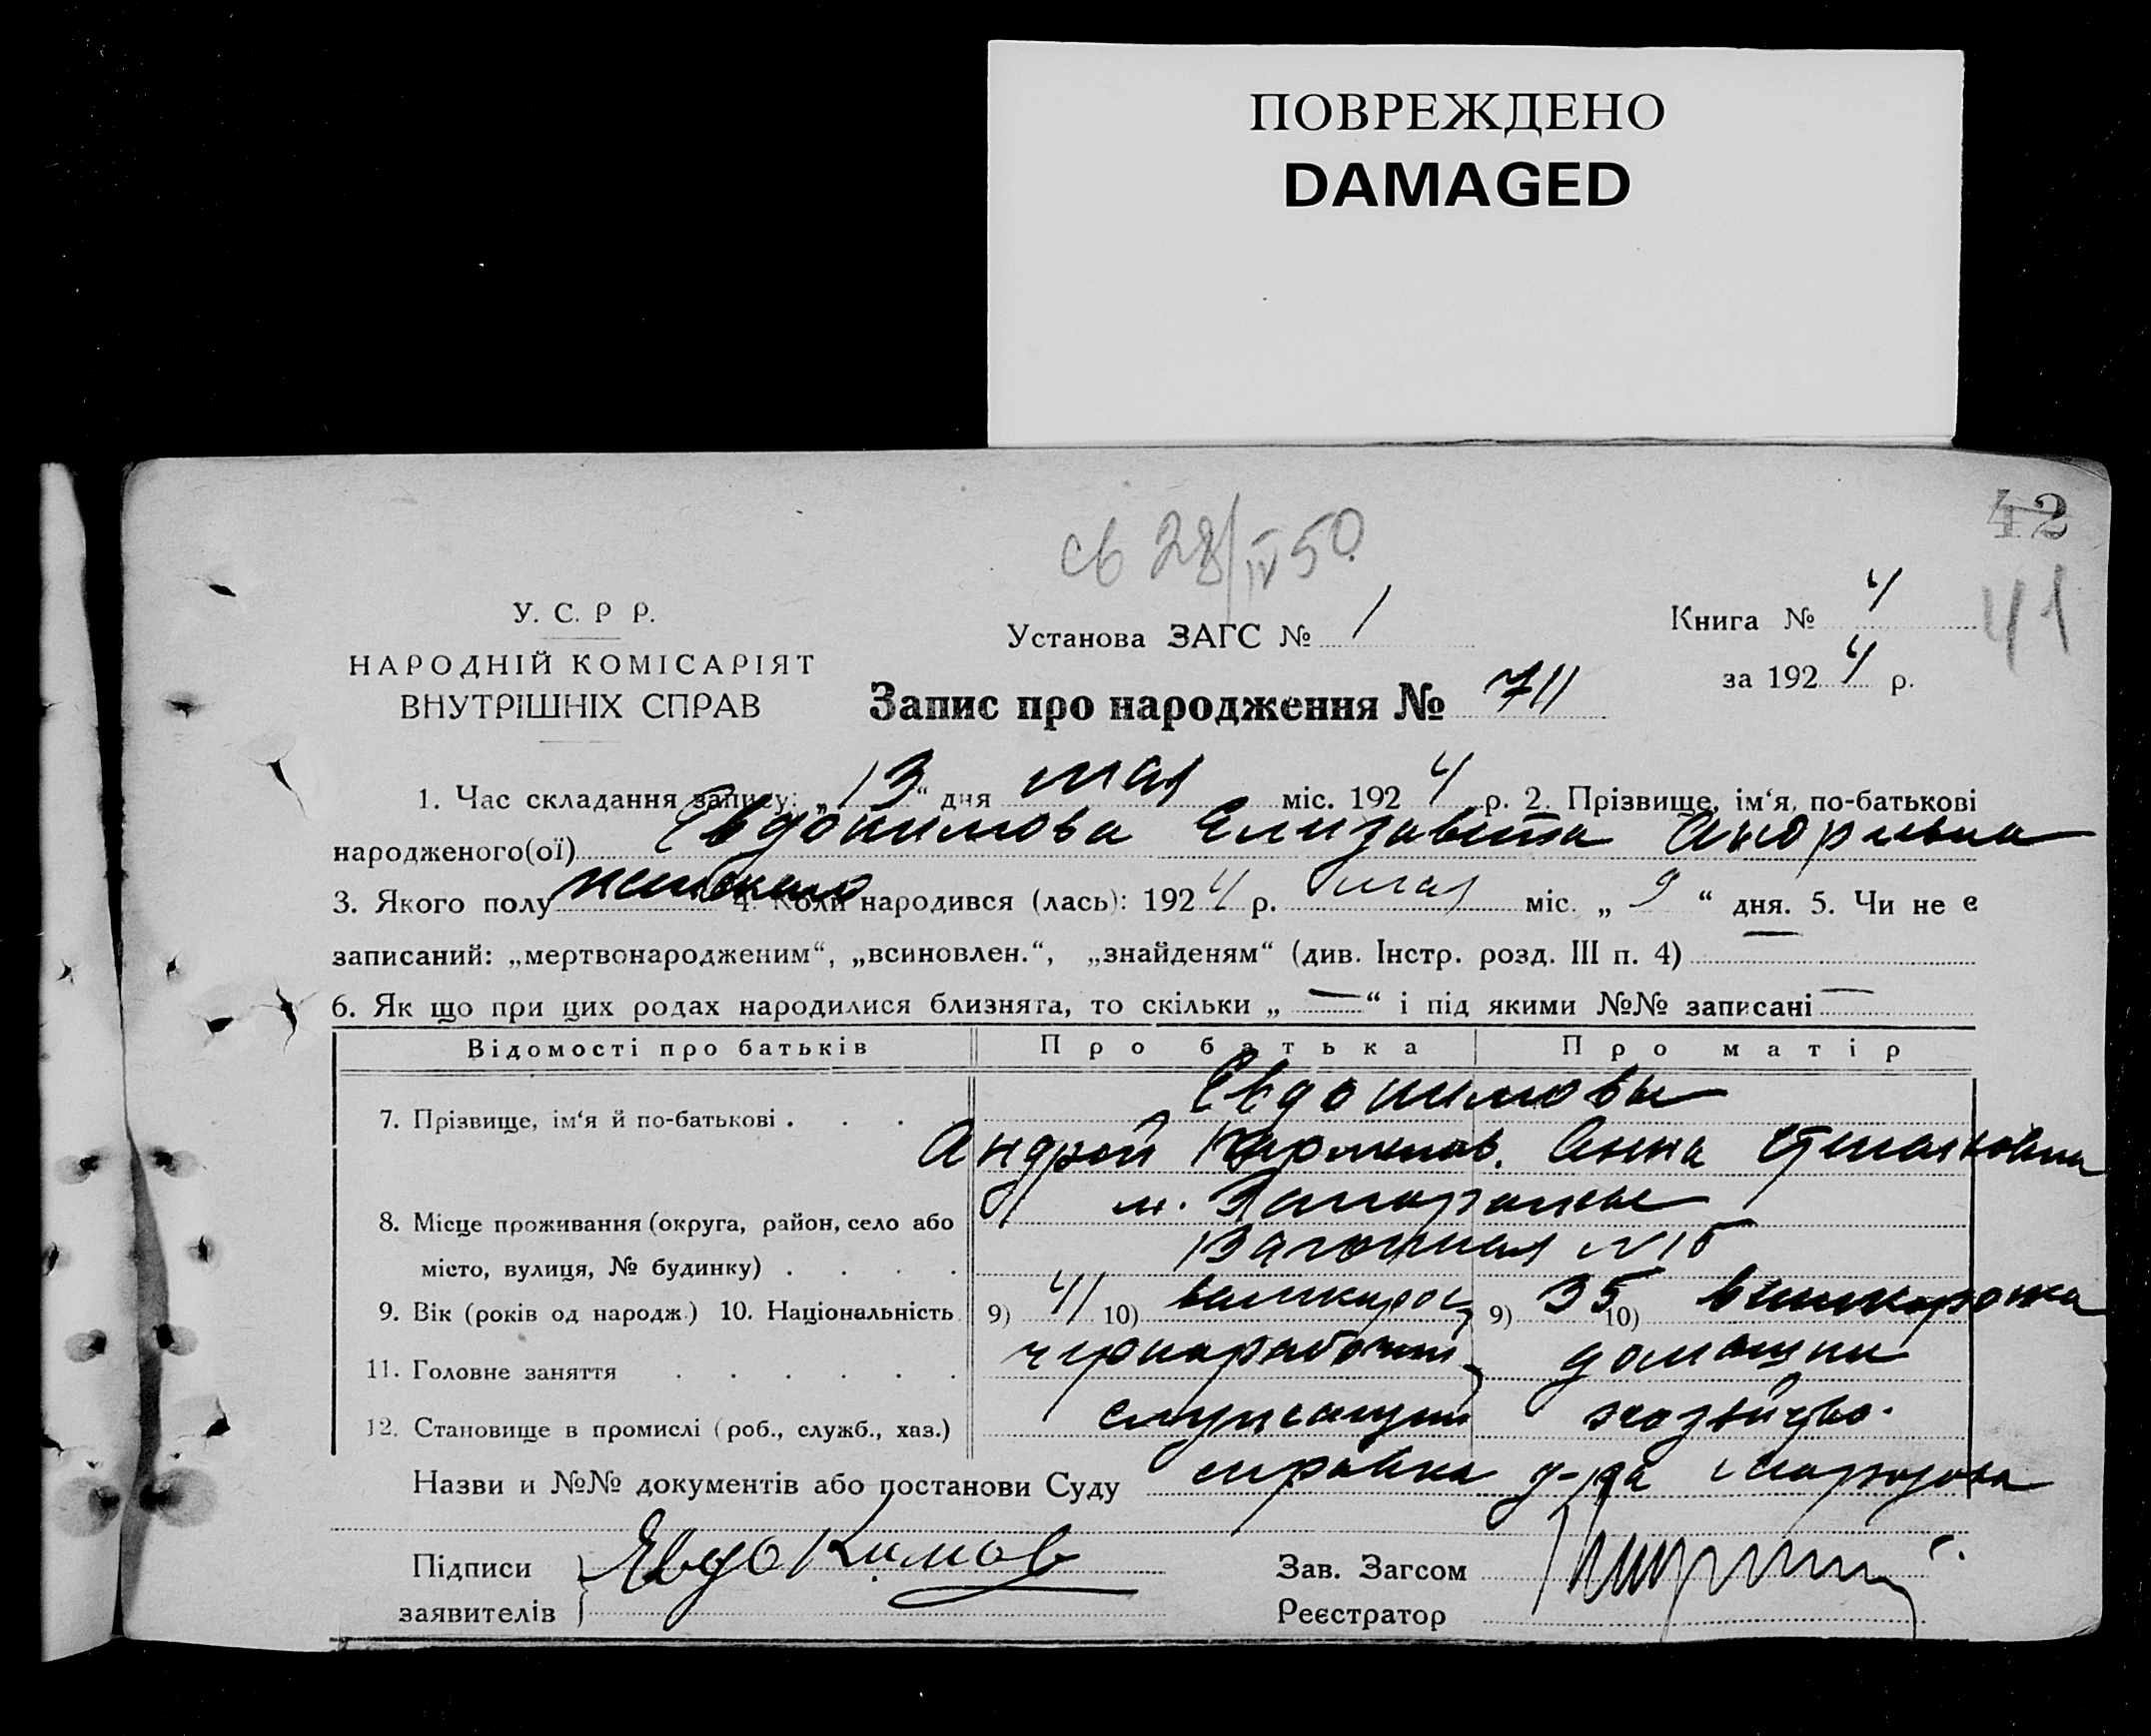 ПОВРЕЖДЕНО
DAMAGED
42
41
св 28/IV 50
У. С. Р Р.
НАРОДНІЙ КОМІСАРІЯТ
ВНУТРІШНІХ СПРАВ
Установа ЗАГС № 1
Книга № 4
за 1924 р.
Запис про народження № 711
1. Час складання запису: „13“ дня мая міс. 1924 р. 2. Прізвище, ім‘я, по-батькові
народженого(ої) Евдокимова Елизавета Андреевна
3. Якого полу женского 4. Коли народився (лась): 1924 р. мая міс. „9“ дня. 5. Чи не є
записаний: „мертвонародженим“, „всиновлен.“, „знайденям“ (див. Інстр. розд. III п. 4) —
6. Як що при цих родах народилися близнята, то скільки „—“ і під якими №№ записані —
Відомості про батьків Про батька Про матір
7. Прізвище, ім‘я й по-батькові . . . Евдокимовы
Андрей Анна
8. Місце проживання (округа, район, село або м. Запорожье
місто, вулиця, № будинку) . . . . №15
9. Вік (років од народж.) 10. Національність 9) 41 10) 9) 35 10)
11. Головне заняття . . . . . . чернорабочий домашн
12. Становище в промислі (роб., служб., хаз.) служащий хозяйство.
Назви и №№ документів або постанови Суду справка д-ра
Підписи Евдокимов
заявителів
Зав. Загсом
Реєстратор